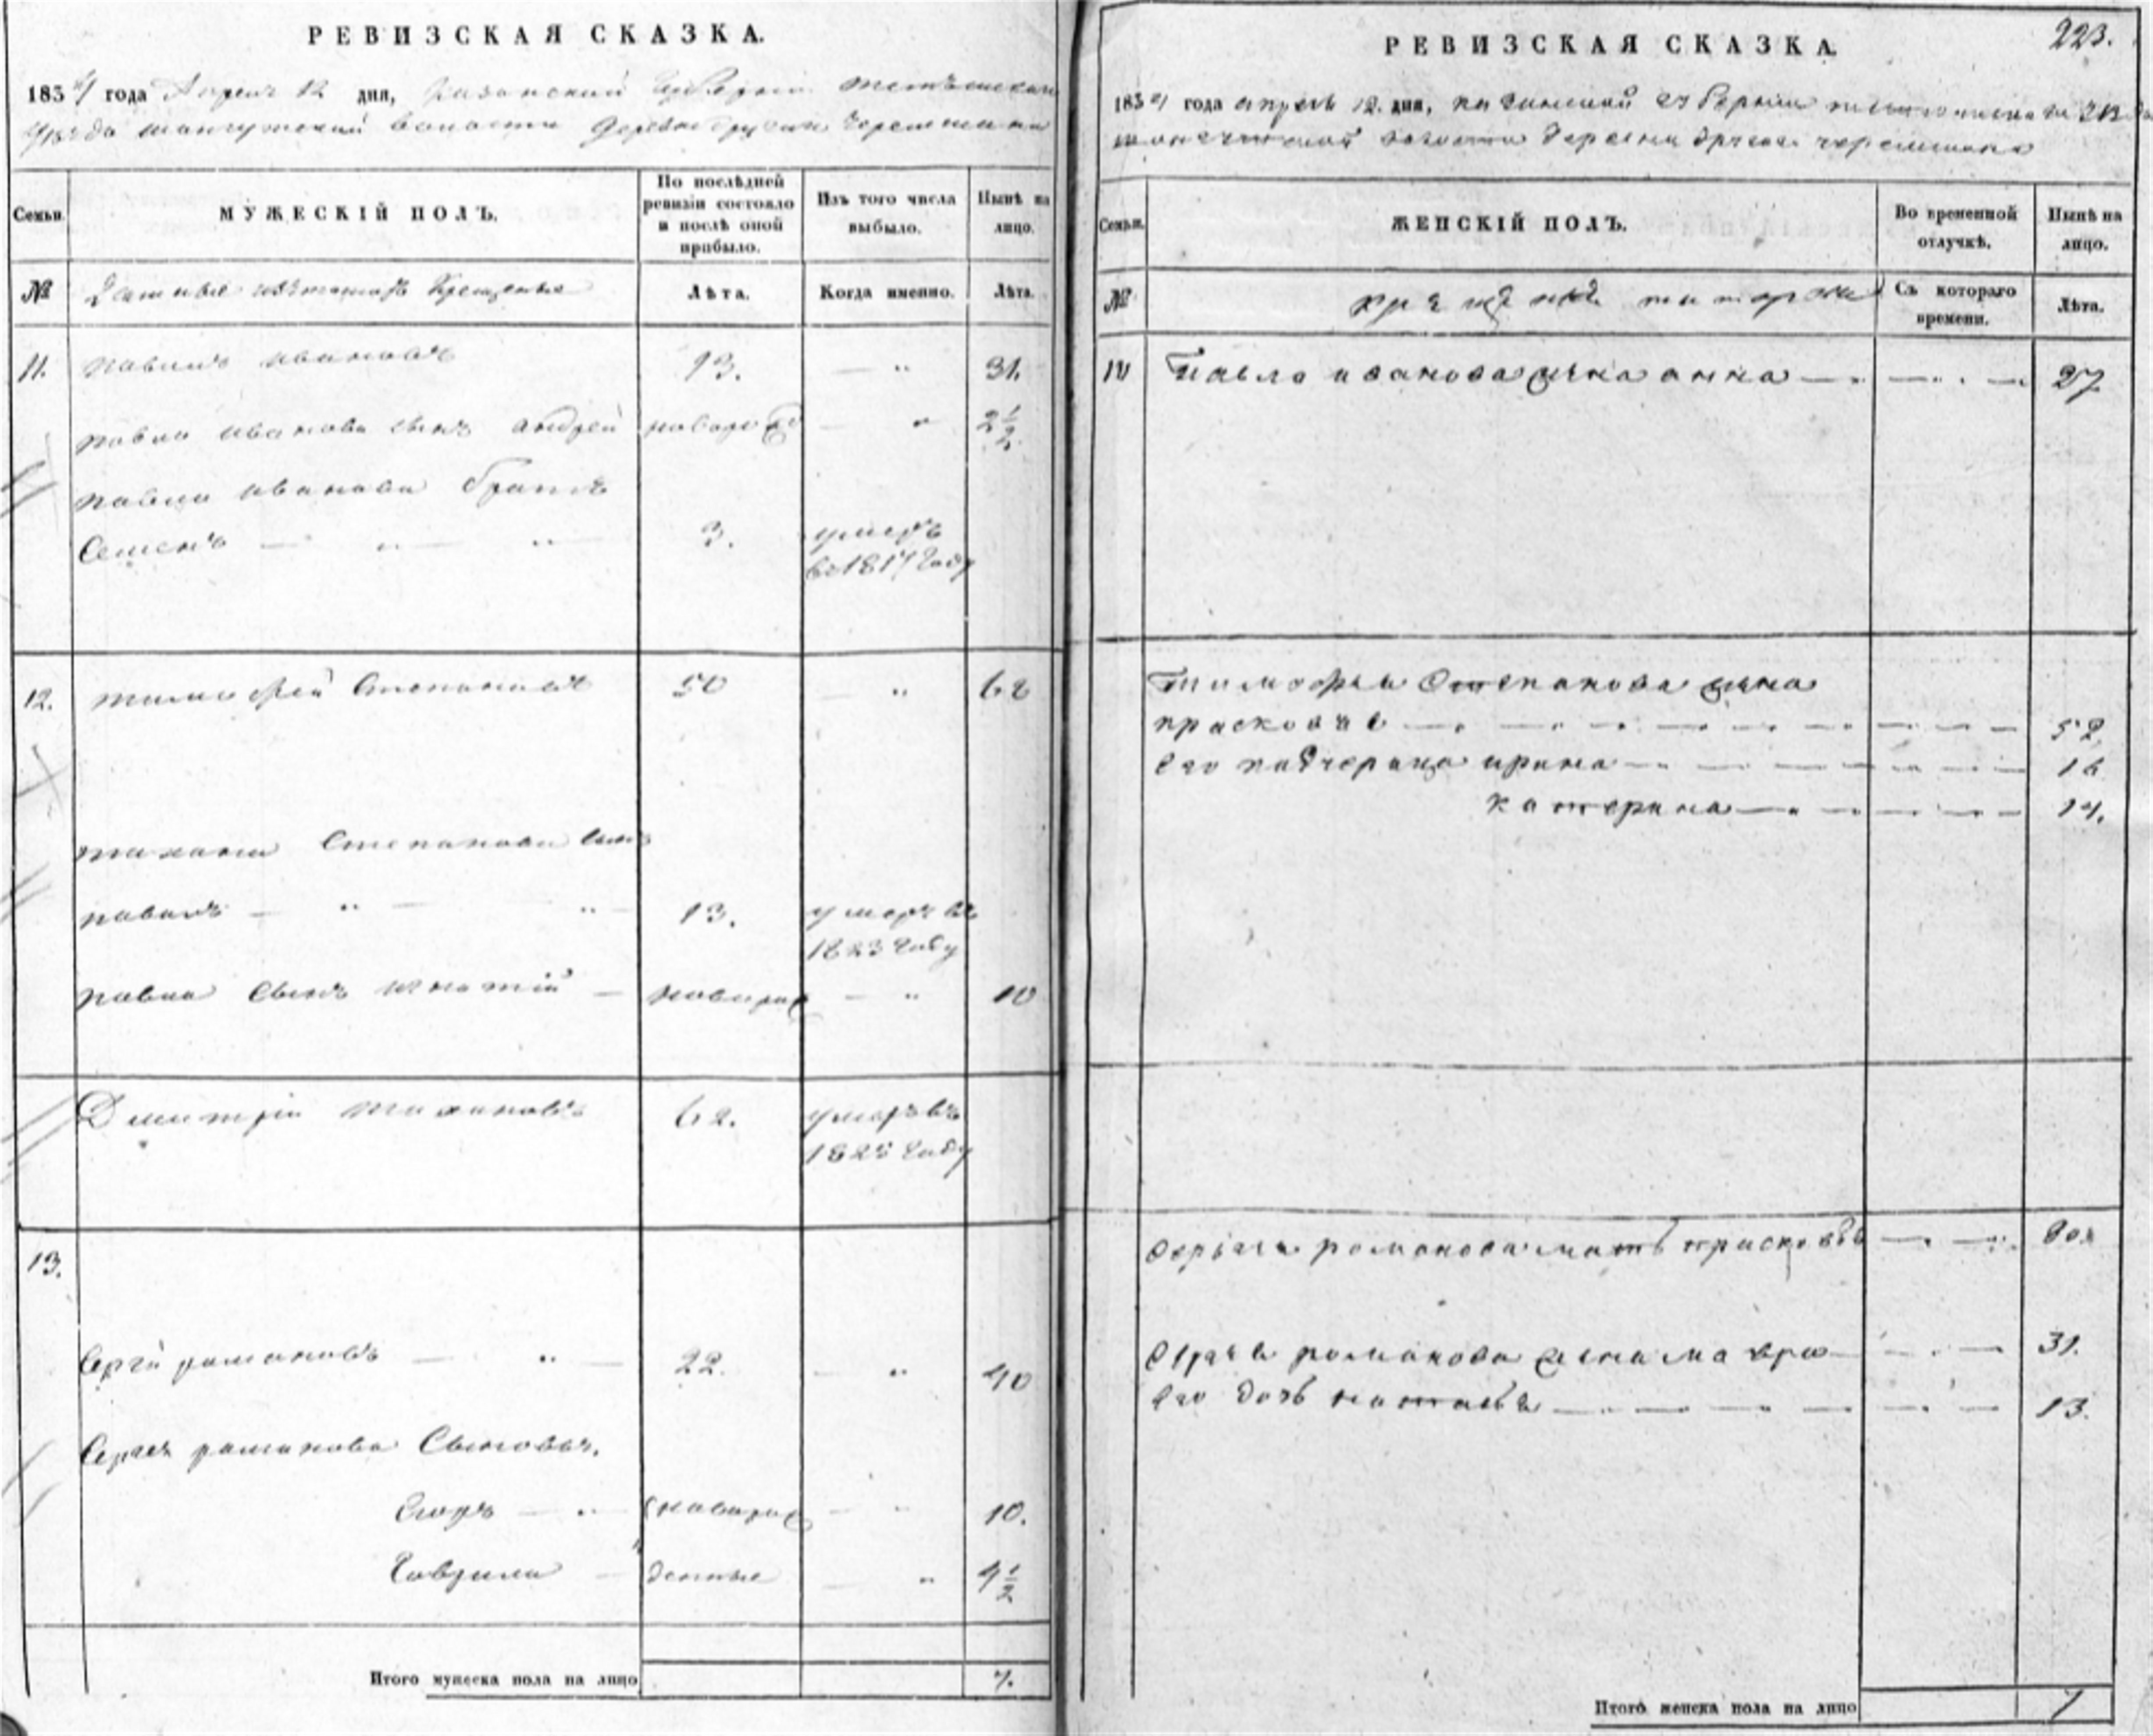 РЕВИЗСКАЯ СКАЗКА.
1834 года Апреля 12 дня, Казанской Губернии Тетюшскаго
уезда шонгутской волости деревни другой Черемшана
Семьи.
МУЖЕСКІЙ ПОЛЪ.
По послѣдней ревизіи состояло и послѣ оной прибыло.
Изъ того числа выбыло.
Нынѣ на лицо.
№
изъ татаръ Крещеные
Лѣта.
Когда именно.
Лѣта.
11. павилъ ивановъ 13. — " 31.
павла иванова сынъ андрей новорожд — " 2 1/2
павла иванова братъ
Семенъ — " — " — 3. умеръ
въ 1817 году
12. тимофей Степановъ 50 — " 68
Степанова сынъ
павилъ — " — " — 13. умеръ въ
1823 году
павла сынъ игнатій — новорож — " 10
Дмитрій 62. умеръ въ
1825 году
13.
Сергій романовъ — " — 22. — " 40
Сергея романова Сыновья.
Егоръ — " новорож — " 10.
Гаврила — " денные — " 4 1/2
Итого мужеска пола на лицо 7.
223.
РЕВИЗСКАЯ СКАЗКА.
1834 года апреля 12. дня, казанской губерни
волости деревни другой черемшана
Семьи.
ЖЕНСКІЙ ПОЛЪ.
Во временной отлучкѣ.
Нынѣ на лицо.
№
Съ котораго времени.
Лѣта.
Павла иванова жена анна — 27
Тимофея Степанова жена
прасковья — 52.
его падчерица ирина — 16
катерина — 14.
романова мать прасковья — 80
романова жена мавра — 31.
его дочь наталья — 13.
Итого женска пола на лицо 7